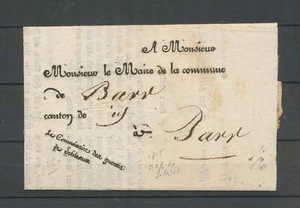 A Monsieur
Monsieur le Maire de la commune
de Barr
canton de
à Barr
Le Commissaire des guerres